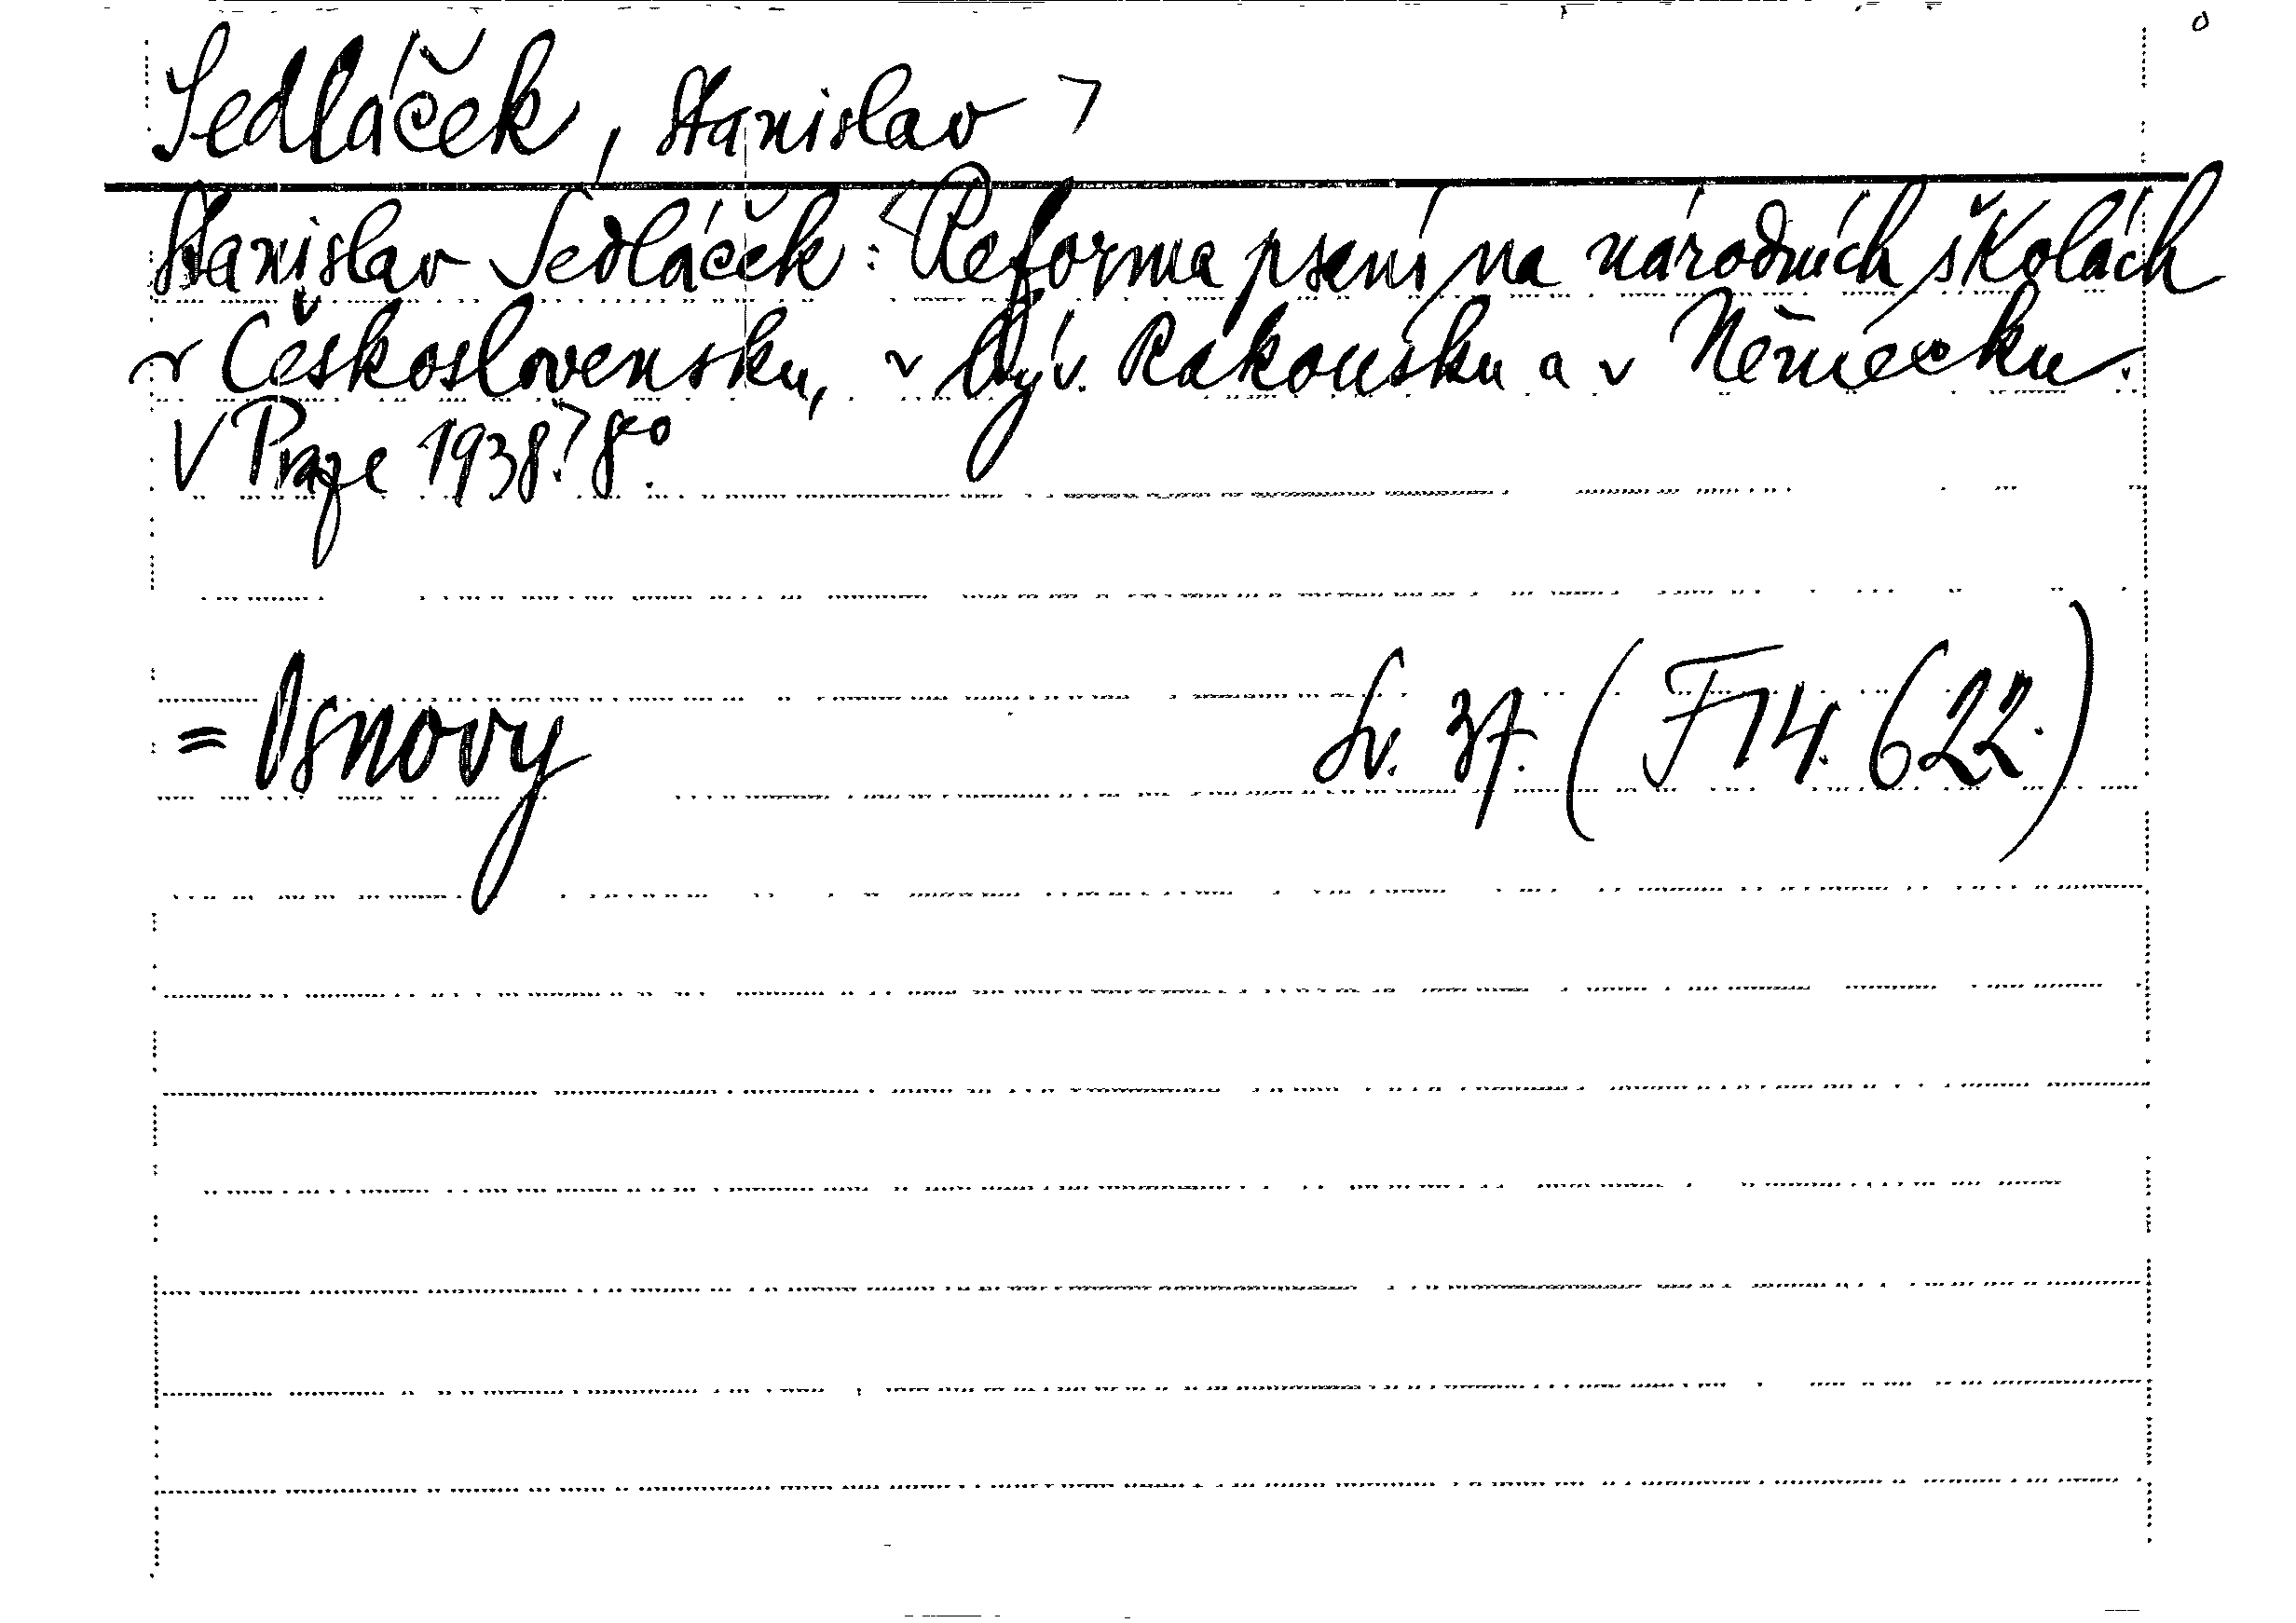 Sedláček, Stanislav
Stanislav Sedláček: Reforma psaní na národních školách
v Československu, v býv. Rakousku a v Německu.
V Praze 1938. 8°.
= Osnovy Sv. 37. (F 14. 622.)